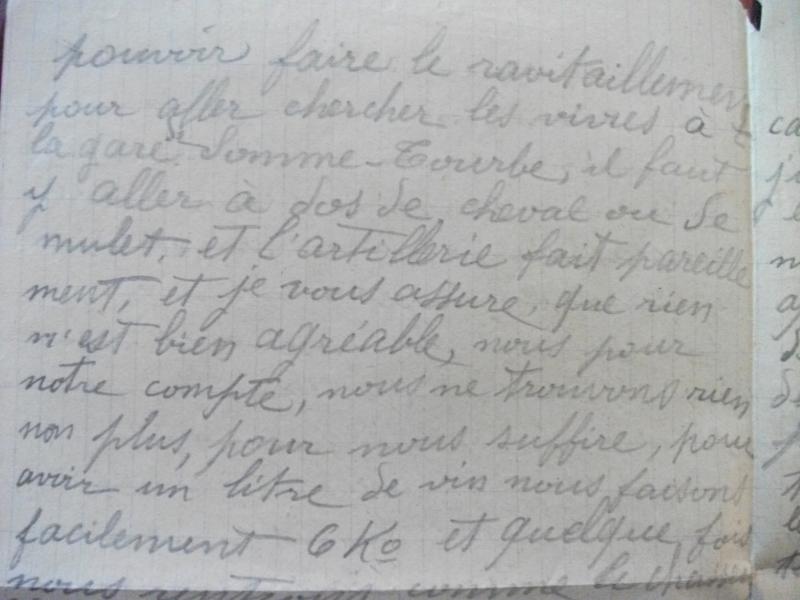 pouvoir faire le ravitaillement
pour aller chercher les vivres à
la gare Somme-Tourbe, il faut
y aller à dos de cheval ou de
mulet, et l'artillerie fait pareille
ment, et je vous assure, que rien
n'est bien agréable, nous pour
notre compte, nous ne trouvons rien
non plus, pour nous suffire, pour
avoir un litre de vin nous faisons
facilement 6 Ko et quelque fois
nous rentrons comme le chasseur